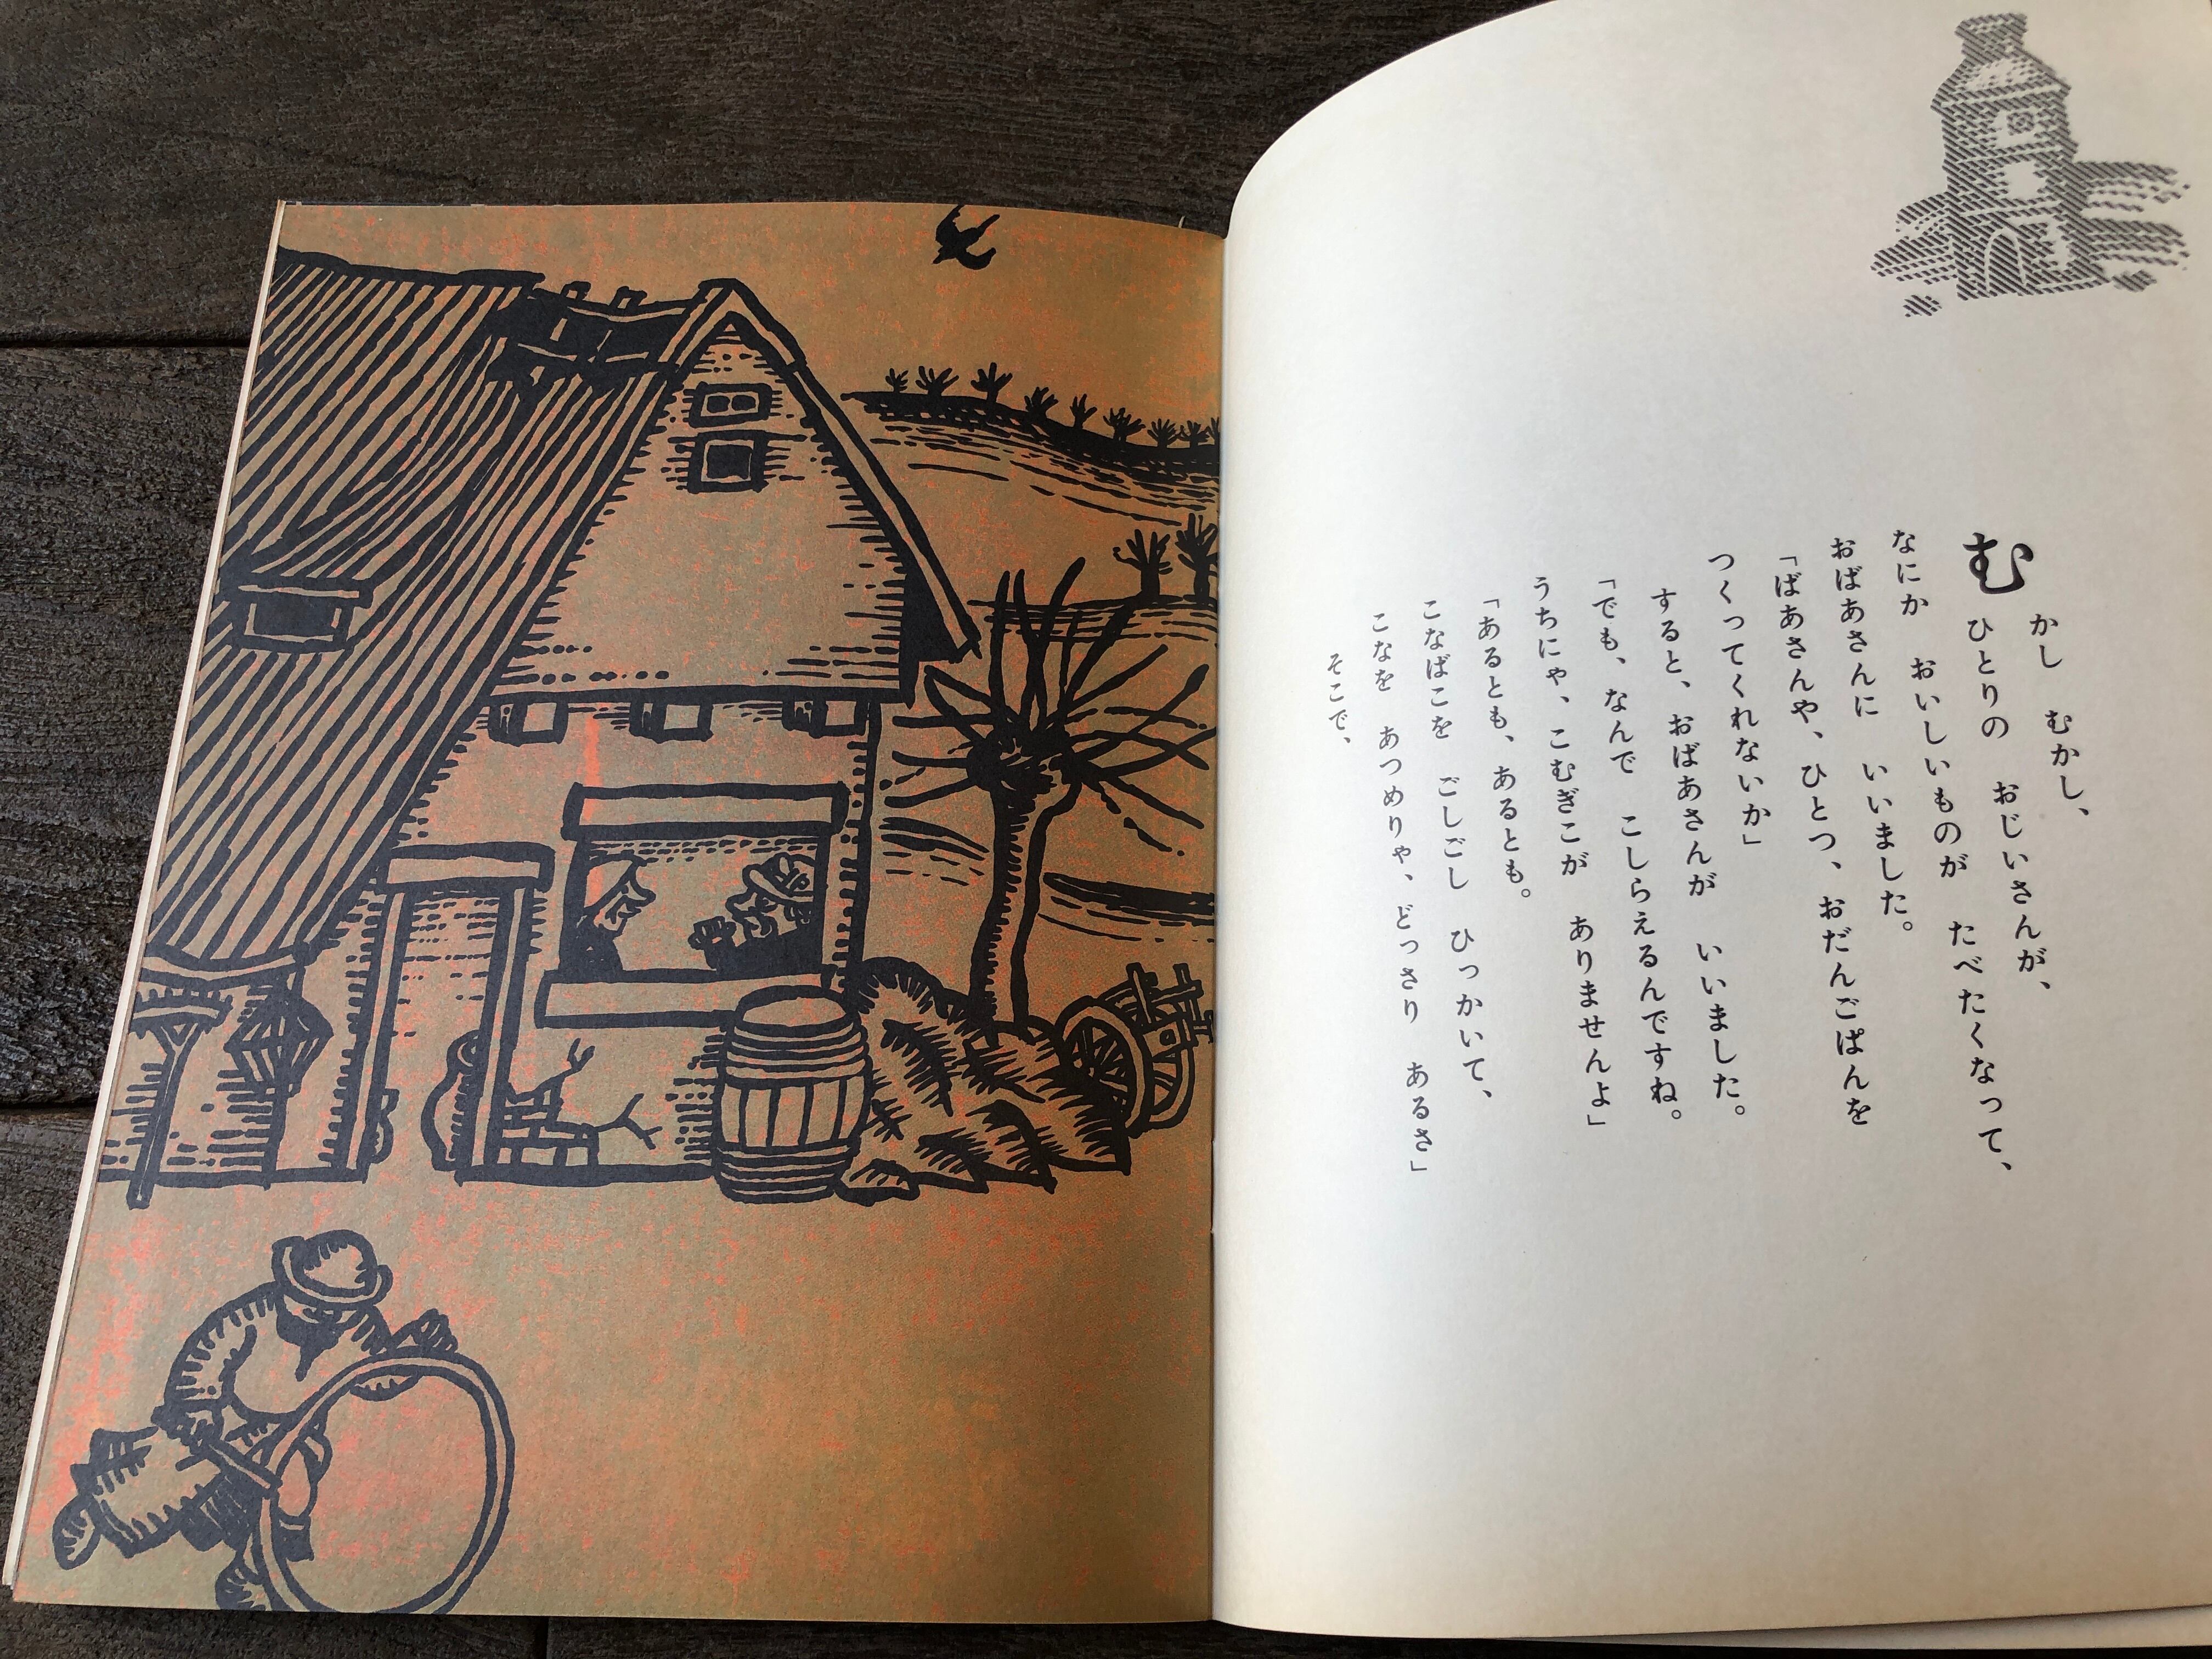 むかし　むかし、
ひとりの　おじいさんが、
なにか　おいしいものが　たべたくなって、
おばあさんに　いいました。
「ばあさんや、ひとつ、おだんごぱんを
つくってくれないか」
すると、おばあさんが　いいました。
「でも、なんで　こしらえるんですね。
うちにゃ、こむぎこが　ありませんよ」
「あるとも、あるとも。
こなばこを　ごしごし　ひっかいて、
こなを　あつめりゃ、どっさり　あるさ」
そこで、